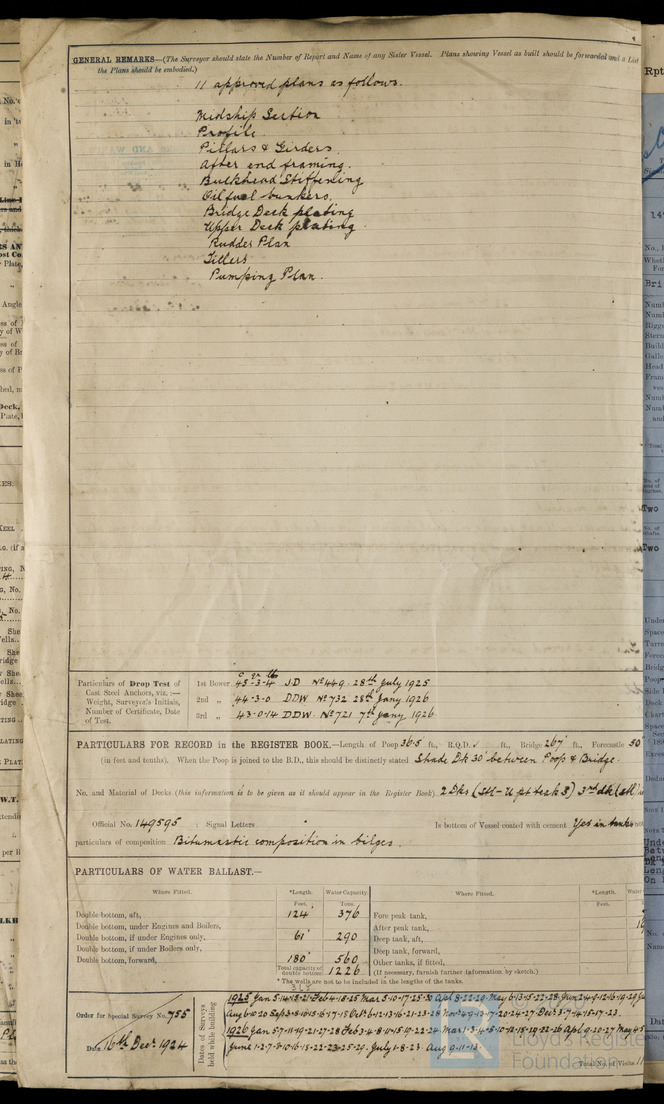 GENERAL REMARKS—(The Surveyor should state the Number of Report and Name of any Sister Vessel. Plans showing Vessel as built should be forwarded and a List
the Plans should be embodied.)
11 approved plans as follows.
Midship Section
Profile.
Pillars & Girders.
After end framing.
Bulkhead Stiffening
Oil fuel bunkers.
Bridge Deck plating
Upper Deck plating.
Rudder Plan
Tillers
Pumping Plan.
Particulars of Drop Test of
Cast Steel Anchors, viz.:—
Weight, Surveyor's Initials,
Number of Certificate, Date
of Test.
1st Bower 45-3-4 JD No 449. 28th July 1925
2nd „ 44-3-0 DDW No 732 28th Jany 1926
3rd „ 43-0-14 DDW. No 721 7th Jany 1926
PARTICULARS FOR RECORD in the REGISTER BOOK.—Length of Poop 36.5 ft., R.Q.D. ft., Bridge 267 ft., Forecastle 50
(in feet and tenths). When the Poop is joined to the B.D., this should be distinctly stated Shade Dk 30' between Poop & Bridge.
No. and Material of Decks (this information is to be given as it should appear in the Register Book) 2 Dks (Stl - U pt teak S) 3rd dk (stl)
Official No. 149595 ; Signal Letters Is bottom of Vessel coated with cement Yes in tanks
particulars of composition Bitumastic composition in bilges.
PARTICULARS OF WATER BALLAST.—
Where Fitted. *Length. Water Capacity. Where Fitted. *Length. Water
Feet. Tons. Feet.
Double bottom, aft, 124 376 Fore peak tank,
Double bottom, under Engines and Boilers, After peak tank,
Double bottom, if under Engines only, 61 290 Deep tank, aft,
Double bottom, if under Boilers only, Deep tank, forward,
Double bottom, forward, 180 560 Other tanks, if fitted,
Total capacity of double bottom 1226 (If necessary, furnish further information by sketch.)
365
*The wells are not to be included in the lengths of the tanks.
Order for Special Survey No. 755
Date 16th Decr 1924
Dates of Surveys held while building
1925 Jan 5-14-15-21 Feb 4-18-25 Mar 3-10-17-25-30 Apl 8-22-29 May 6-13-15-22-28 Jun 2-4-9-12-16-19-29
Aug 6-10-20 Sep 3-8-10-15-16-17-18 Oct 6-12-13-16-21-23-28 Nov 4-9-13-17-20-24-27 Dec 3-7-14-15-17-23.
1926 Jan 5-7-11-19-21-27-28 Feb 3-4-8-11-15-19-22-24 Mar 1-3-4-5-10-12-15-19-22-26 Apl 9-20-27 May 4-5
June 1-2-7-8-10-16-18-22-23-25-29. July 1-8-23. Aug 9-11-13.
Total No. of Visits
Lloyd's Register
Foundation